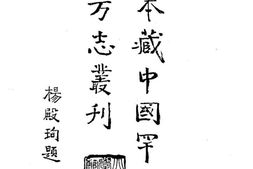 本藏中國罕
方志叢刊
楊殿珣題